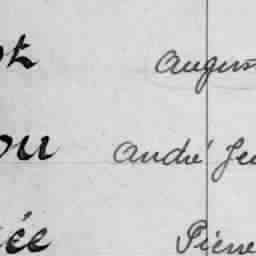 ot Augus
ou André Ge
ée Pierre